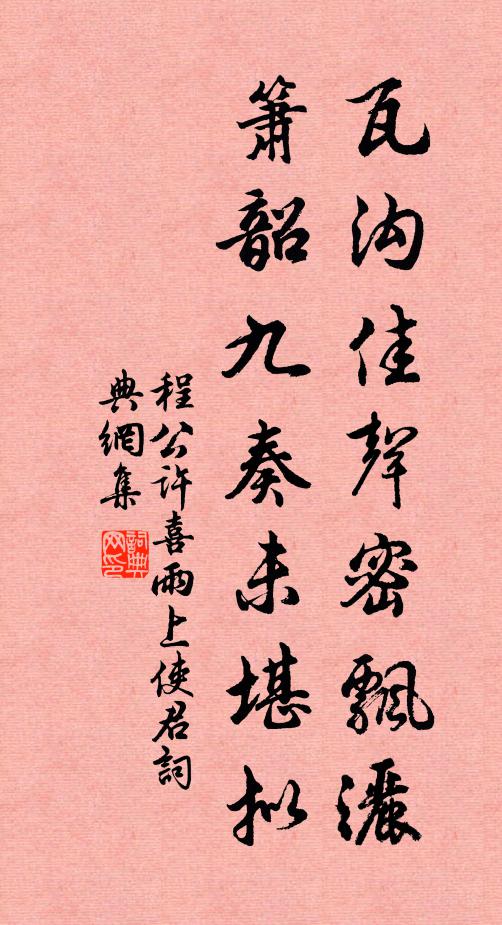 瓦沟佳聲密飄灑
箫韶九奏未堪拟
程公许喜雨上使君詞
典網集
詞典网印